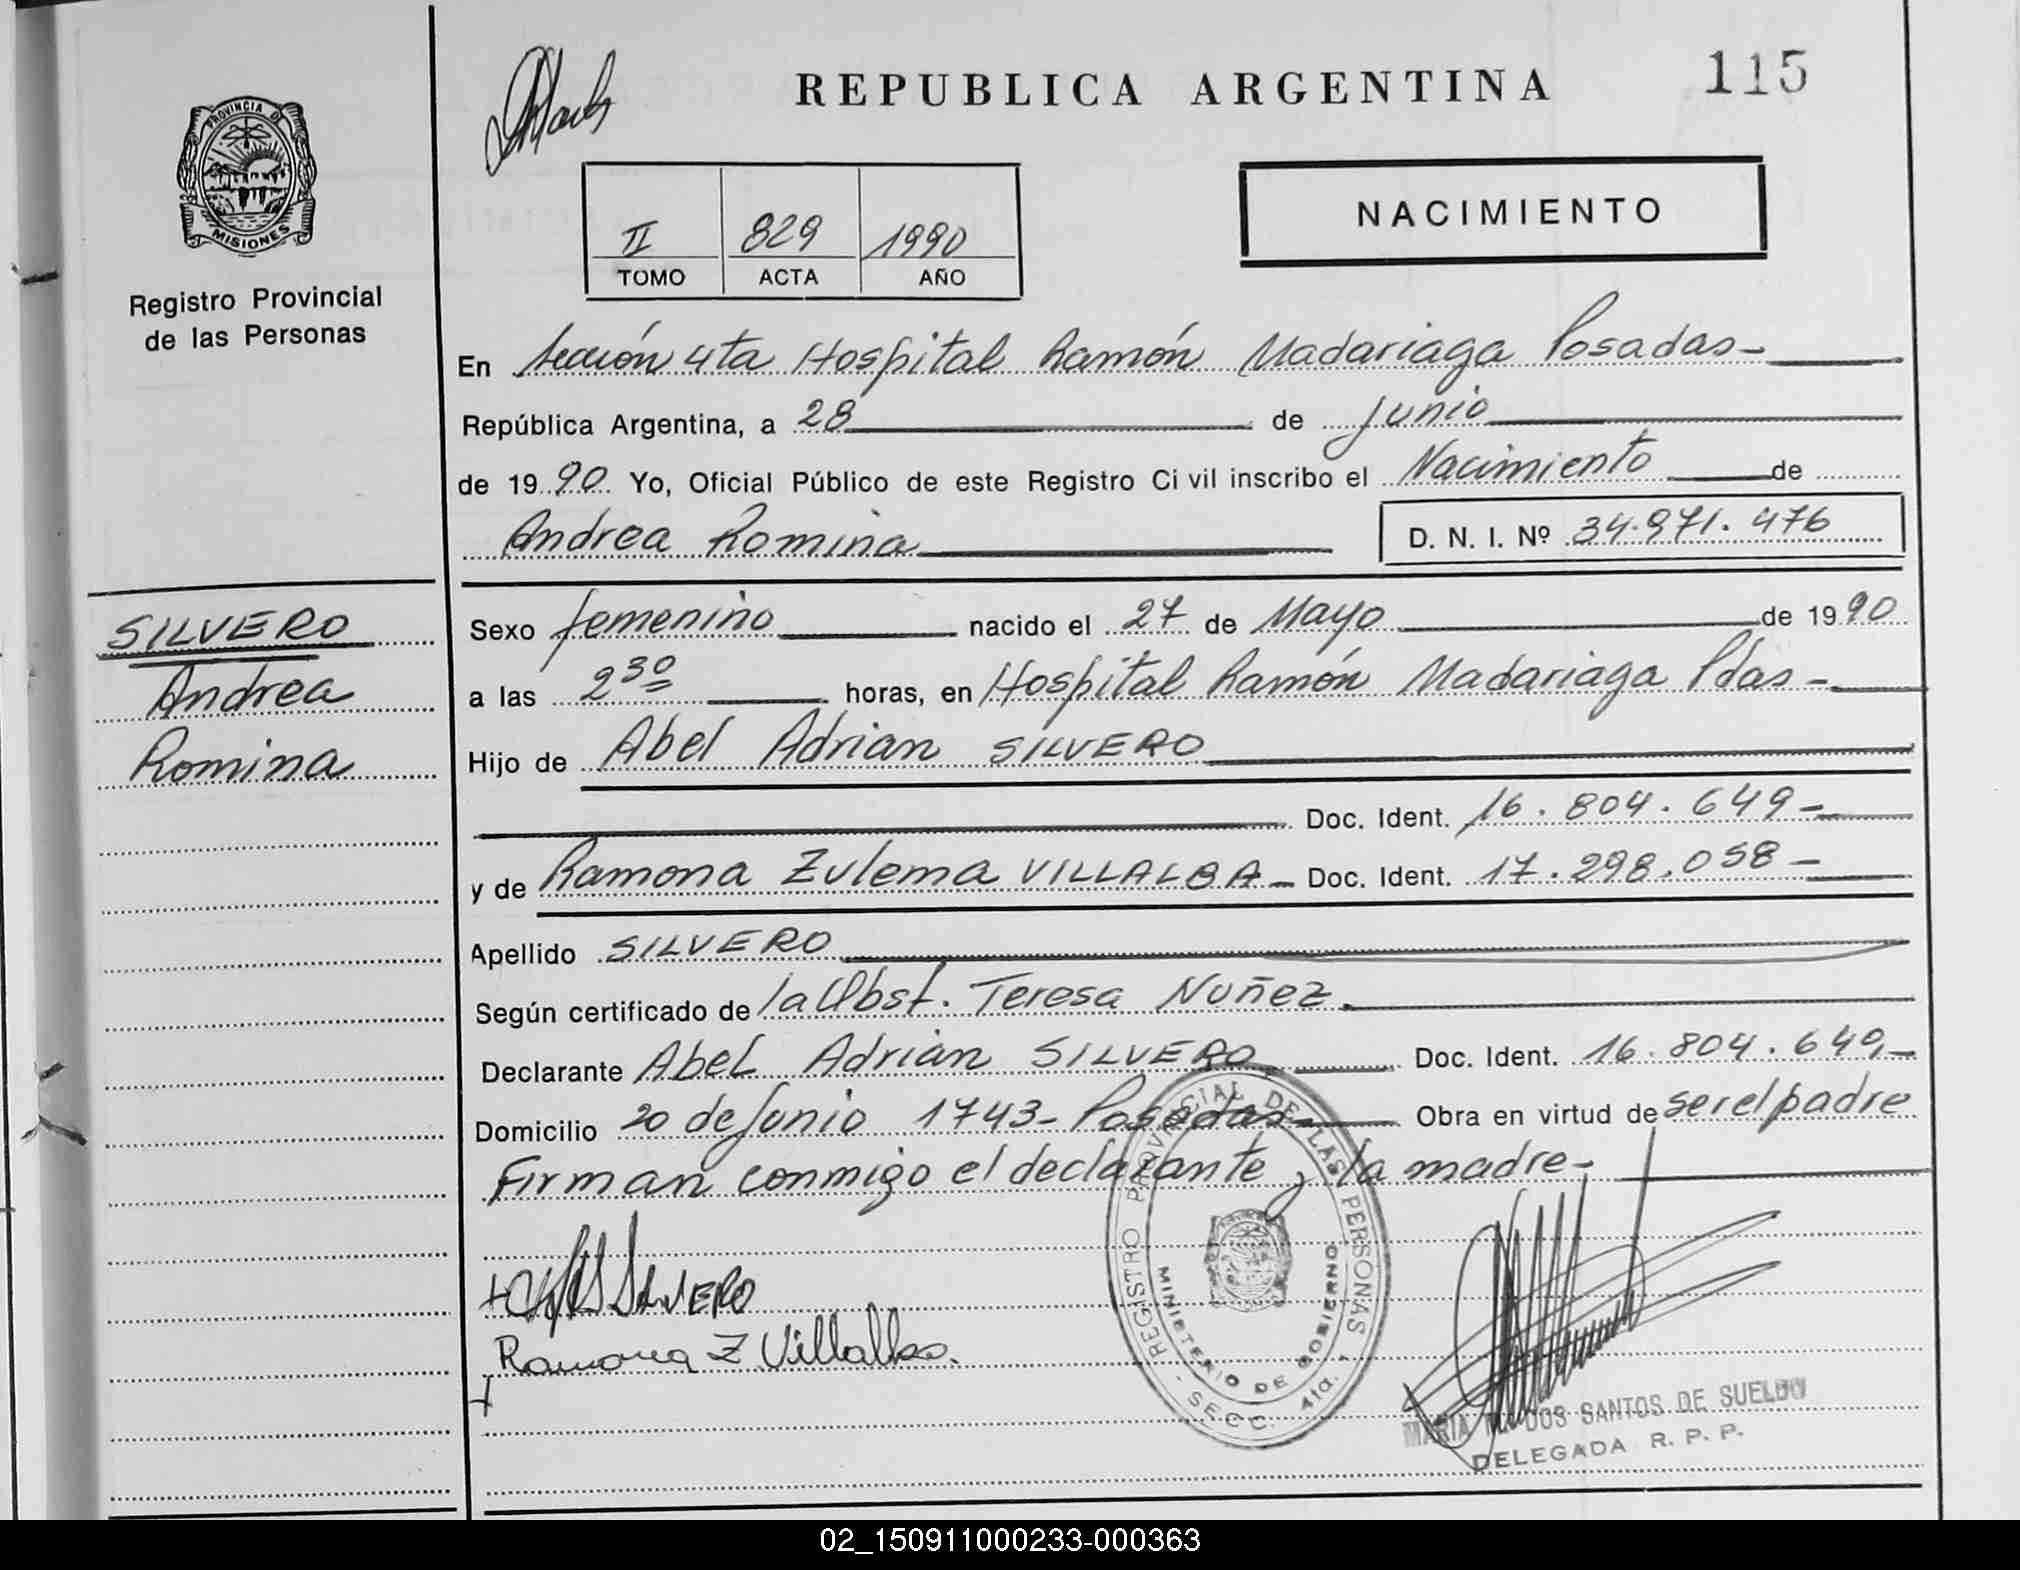 REPUBLICA ARGENTINA
115
PROVINCIA D
MISIONES
Registro Provincial
de las Personas
II 829 1990
TOMO ACTA AÑO
NACIMIENTO
En Sección 4ta Hospital Ramón Madariaga Posadas-
República Argentina, a 28 de Junio
de 1990 Yo, Oficial Público de este Registro Civil inscribo el Nacimiento de
Andrea Romina
D. N. I. Nº 34.971.476
SILVERO
Andrea
Romina
Sexo femenino nacido el 27 de Mayo de 1990
a las 2 30 horas, en Hospital Ramón Madariaga Pdas-
Hijo de Abel Adrian SILVERO
Doc. Ident. 16.804.649-
y de Ramona Zulema VILLALBA- Doc. Ident. 17.298.058-
Apellido SILVERO
Según certificado de la Obst. Teresa Nuñez.
Declarante Abel Adrian SILVERO Doc. Ident. 16.804.649,-
Domicilio 20 de Junio 1743- Posadas- Obra en virtud de ser el padre
Firman conmigo el declarante y la madre-
SILVERO
Ramona Z Villalba.
REGISTRO PROVINCIAL DE LAS PERSONAS
MINISTERIO DE GOBIERNO
- SECC. 4ta. -
MARIA DOS SANTOS DE SUELDO
DELEGADA R. P. P.
02_150911000233-000363